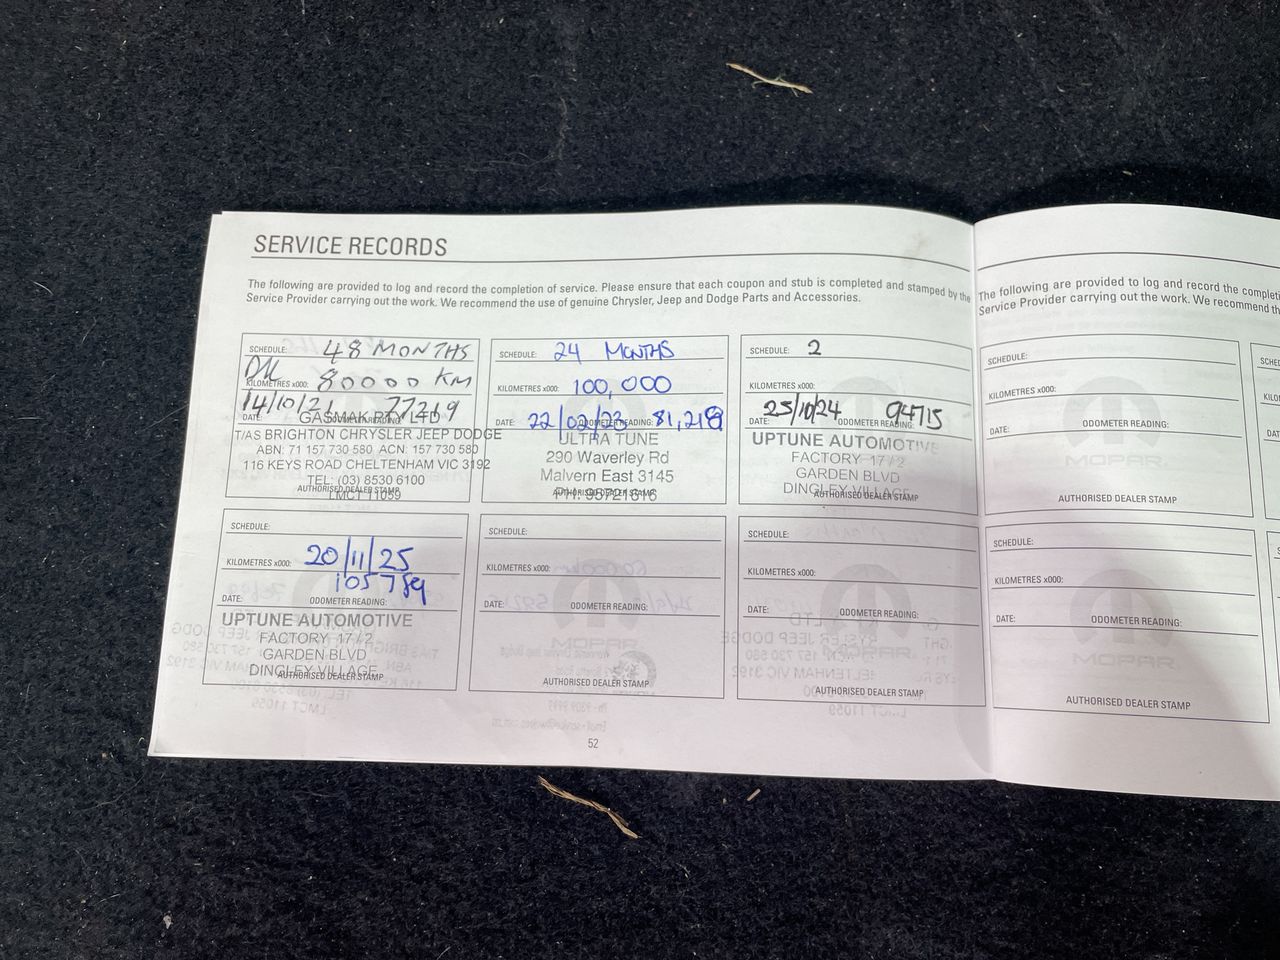 SERVICE RECORDS
The following are provided to log and record the completion of service. Please ensure that each coupon and stub is completed and stamped by the
Service Provider carrying out the work. We recommend the use of genuine Chrysler, Jeep and Dodge Parts and Accessories.
SCHEDULE: 48 MONTHS
KILOMETRES x000: 80000 KM
14/10/2 77219
DATE: ODOMETER READING:
GASMAK PTY LTD
T/AS BRIGHTON CHRYSLER JEEP DODGE
ABN: 71 157 730 580 ACN: 157 730 580
116 KEYS ROAD CHELTENHAM VIC 3192
TEL: (03) 8530 6100
LMCT 11059
AUTHORISED DEALER STAMP
SCHEDULE: 24 MONTHS
KILOMETRES x000: 100,000
DATE: 22/02/23 ODOMETER READING: 81,219
ULTRA TUNE
290 Waverley Rd
Malvern East 3145
AUTHORISED DEALER STAMP
SCHEDULE: 2
KILOMETRES x000:
DATE: 25/10/24 ODOMETER READING: 94715
UPTUNE AUTOMOTIVE
FACTORY 17/2
GARDEN BLVD
DINGLEY VILLAGE
AUTHORISED DEALER STAMP
SCHEDULE:
KILOMETRES x000: 20/11/25
105789
DATE: ODOMETER READING:
UPTUNE AUTOMOTIVE
FACTORY 17/2
GARDEN BLVD
DINGLEY VILLAGE
AUTHORISED DEALER STAMP
SCHEDULE:
KILOMETRES x000:
DATE: ODOMETER READING:
MOPAR
AUTHORISED DEALER STAMP
SCHEDULE:
KILOMETRES x000:
DATE: ODOMETER READING:
MOPAR
AUTHORISED DEALER STAMP
52
The following are provided to log and record the
Service Provider carrying out the work. We recommend
SCHEDULE:
KILOMETRES x000:
DATE: ODOMETER READING:
MOPAR
AUTHORISED DEALER STAMP
SCHEDULE:
KILOMETRES x000:
DATE: ODOMETER READING:
MOPAR
AUTHORISED DEALER STAMP